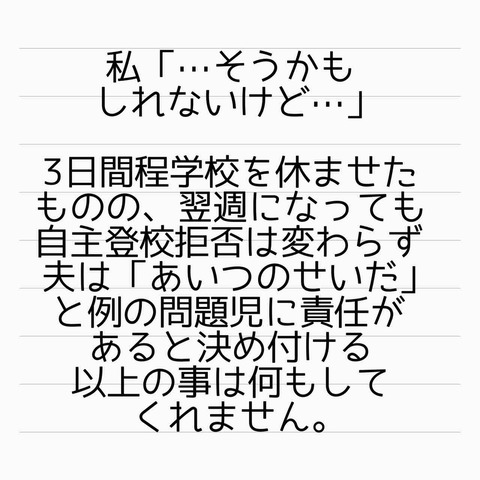 私「…そうかも
しれないけど…」
3日間程学校を休ませた
ものの、翌週になっても
自主登校拒否は変わらず
夫は「あいつのせいだ」
と例の問題児に責任が
あると決め付ける
以上の事は何もして
くれません。